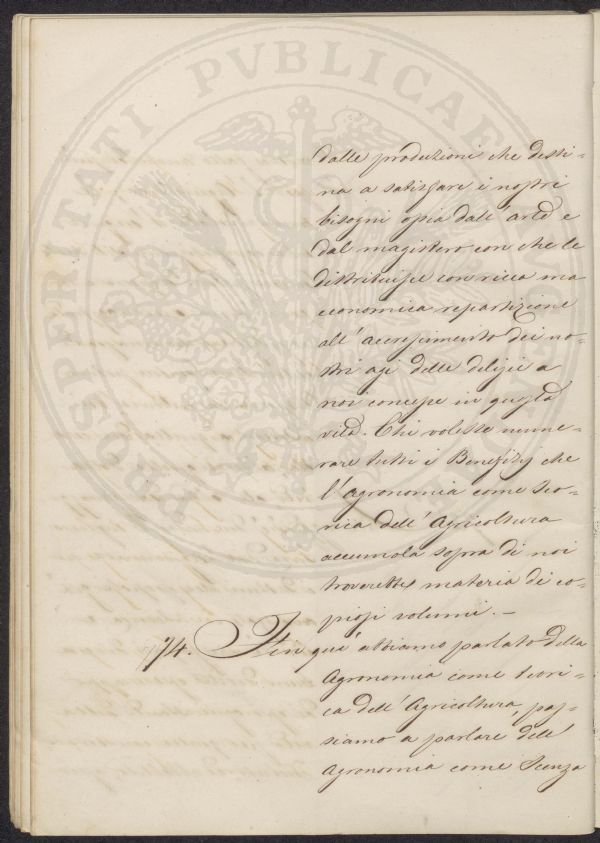 dalle produzioni che desti-
na a satisfare i nostri
bisogni ossia dall' arte e
dal magistero con che le
distribuisce con ricca ma
economica repartizione
all' accrescimento dei no-
stri agi delle delizie a
noi concesse in questa
vita. Chi volesse nume-
rare tutti i Benefizj che
l' Agronomia come teo-
rica dell' Agricoltura
accumola sopra di noi
troverebbe materia di co-
piosi volumi. —
74. Fin qui abbiamo parlato della
Agronomia come teori-
ca dell' Agricoltura, pas-
siamo a parlare dell'
Agronomia come Scenza
PROSPERITATI PVBLICAE